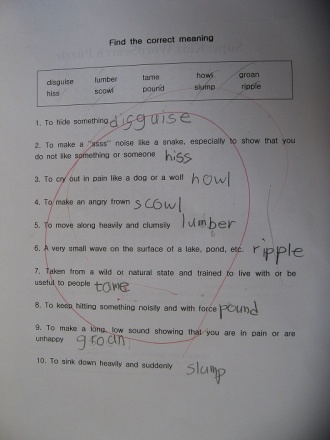 Find the correct meaning
disguise lumber tame howl groan
hiss scowl pound slump ripple
1. To hide something disguise
2. To make a "ssss" noise like a snake, especially to show that you
do not like something or someone hiss
3. To cry out in pain like a dog or a wolf howl
4. To make an angry frown scowl
5. To move along heavily and clumsily lumber
6. A very small wave on the surface of a lake, pond, etc. ripple
7. Taken from a wild or natural state and trained to live with or be
useful to people tame
8. To keep hitting something noisily and with force pound
9. To make a long, low sound showing that you are in pain or are
unhappy groan
10. To sink down heavily and suddenly slump